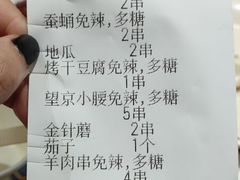 2串
蚕蛹免辣,多糖
2串
地瓜 2串
烤干豆腐免辣,多糖
1串
望京小腰免辣,多糖
5串
金针蘑 2串
茄子 1个
羊肉串免辣,多糖
4串